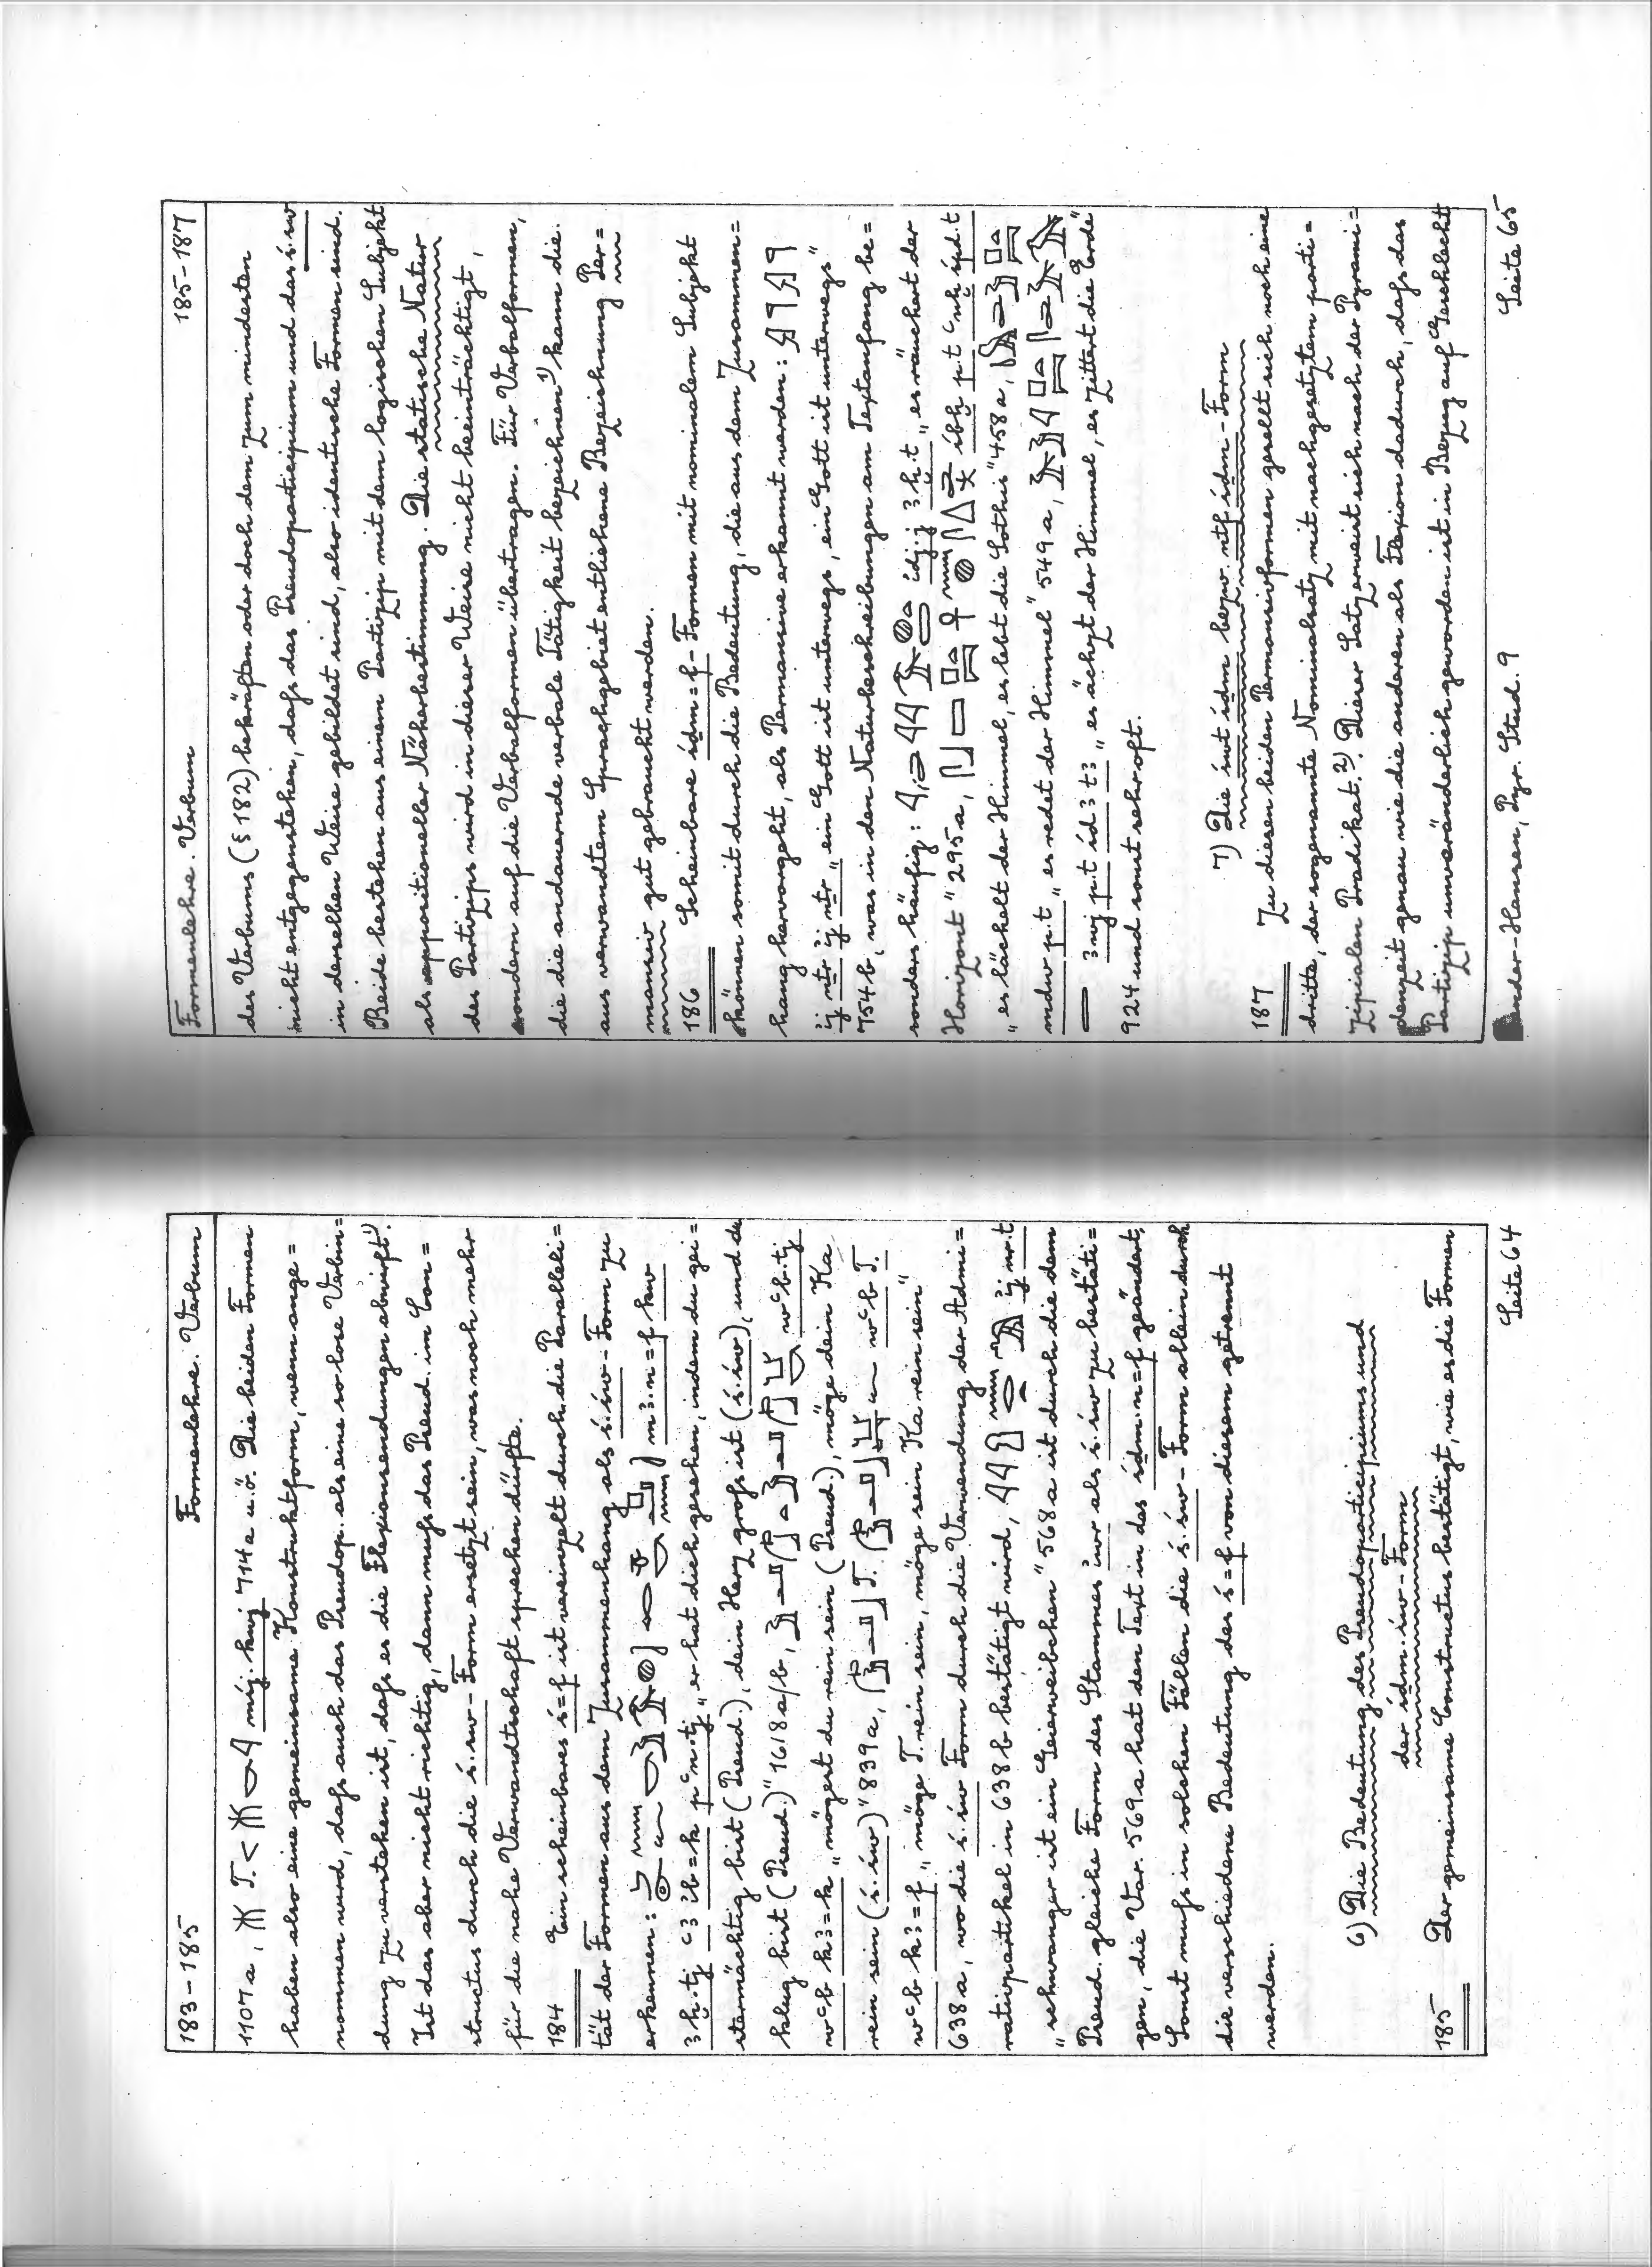 183-185 Formenlehre. Verbum
1107a, T. < mśj.kwj 714a u.ö. Die beiden Formen
haben also eine gemeinsame Konstruktform, wenn ange=
nommen wird, daſs auch das Pseudop. als eine so lose Verbin=
dung zu verstehen ist, daſs es die Flexionsendungen abwirft¹⁾.
Ist das aber nicht richtig, dann muſs das Pseud. im Con=
structus durch die ś.św-Form ersetzt sein, was noch mehr
für die nahe Verwandtschaft sprechen dürfte.
184 Ein scheinbares ś=f ist vereinzelt durch die Paralleli=
tät der Formen aus dem Zusammenhang als ś.św-Form zu
erkennen: m3.n=f kw
3ḫ.tj c3 ib=k pcn.tj „er hat dich gesehen, indem du gei=
stermächtig bist (Pseud.), dein Herz groſs ist (ś.św), und du
klug bist (Pseud.)" 1618a/b, wcb.tj
wcb k3=k „mögest du rein sein (Pseud.), möge dein Ka
rein sein (ś.św)" 839a, T. wcb T.
wcb k3=f „möge T. rein sein, möge sein Ka rein sein"
638a, wo die ś.św Form durch die Verwendung der Admi=
rativpartikel in 638b bestätigt wird, ij nr.t
„schwanger ist ein Geierweibchen" 568a ist durch die dem
Pseud. gleiche Form des Stammes iwr als ś.św zu bestäti=
gen, die Var. 569a hat den Text in das śdm.n=f geändert.
Sonst muſs in solchen Fällen die ś.św-Form allein durch
die verschiedene Bedeutung des ś=f von diesem getrennt
werden.
6) Die Bedeutung des Pseudoparticipiums und
der śdm.św-Form
185 Der gemeinsame Constructus bestätigt, wie es die Formen
Seite 64
Formenlehre. Verbum 185-187
des Verbums (§182) bekräften oder doch dem zum mindesten
nicht entgegenstehen, daſs das Pseudoparticipium und das ś.św
in derselben Weise gebildet sind, also identische Formen sind.
Beide bestehen aus einem Partizip mit dem logischen Subjekt
als appositioneller Näherbestimmung. Die statische Natur
des Partizips wird in dieser Weise nicht beeinträchtigt,
sondern auf die Verbalformen übertragen. Für Verbalformen,
die die andauernde verbale Tätigkeit bezeichnen¹⁾ kann die
aus verwandtem Sprachgebiet entliehene Bezeichnung Per=
mansiv gut gebraucht werden.
186 Scheinbare śdm=f-Formen mit nominalem Subjekt
können somit durch die Bedeutung, die aus dem Zusammen=
hang hervorgeht, als Permansive erkannt werden:
ij nṯr ij nṯr „ein Gott ist unterwegs, ein Gott ist unterwegs"
754b, was in den Naturbeschreibungen am Textanfang be=
sonders häufig: idj.j 3ḫ.t „es räuchert der
Horizont" 295a, śbḫ p.t cnḫ śpd.t
„es lächelt der Himmel, es lebt die Sothis" 458a,
mdw p.t „es redet der Himmel" 549a,
3wj p.t śd3 t3 „es ächzt der Himmel, es zittert die Erde"
924 und sonst sehr oft.
7) Die śwt śdm bezw. ntf śdm-Form
187 Zu diesen beiden Permansivformen gesellt sich noch eine
dritte, der sogenannte Nominalsatz mit nachgesetztem parti=
zipialen Prädikat.²⁾ Dieser Satz erweist sich nach der Pyrami=
denzeit genau wie die anderen als Flexion dadurch, daſs das
Partizip unveränderlich geworden ist in Bezug auf Geschlecht
Sander-Hansen, Pyr. Stud. 9 Seite 65